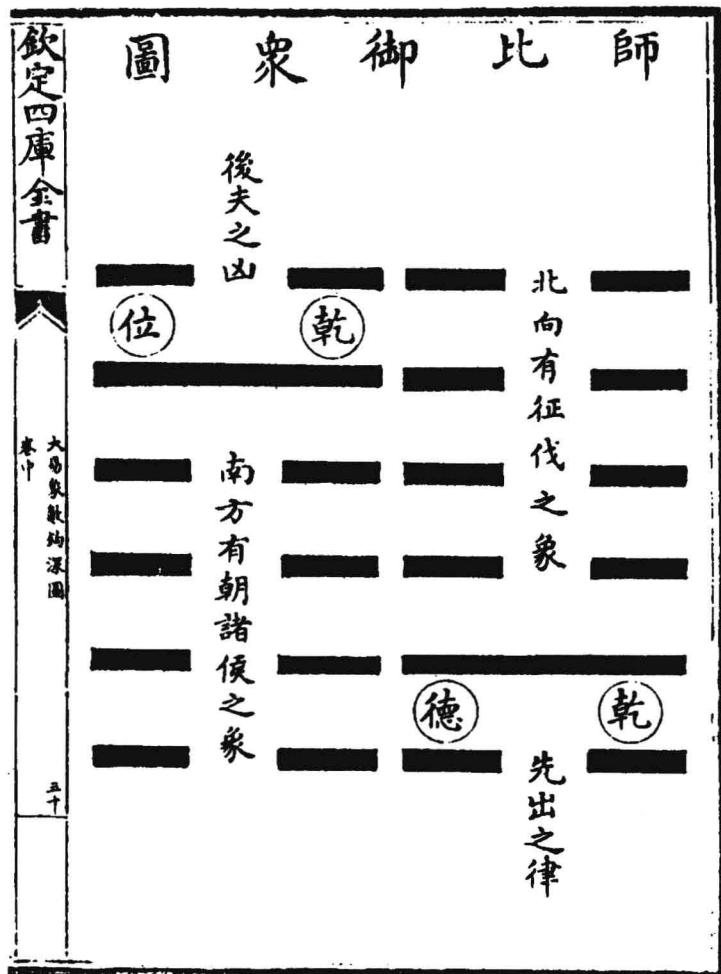 師比御衆圖
北向有征伐之象
乾
德
先出之律
後夫之凶
乾
位
南方有朝諸侯之象
欽定四庫全書
大易象數鈎深圖
卷中
五十